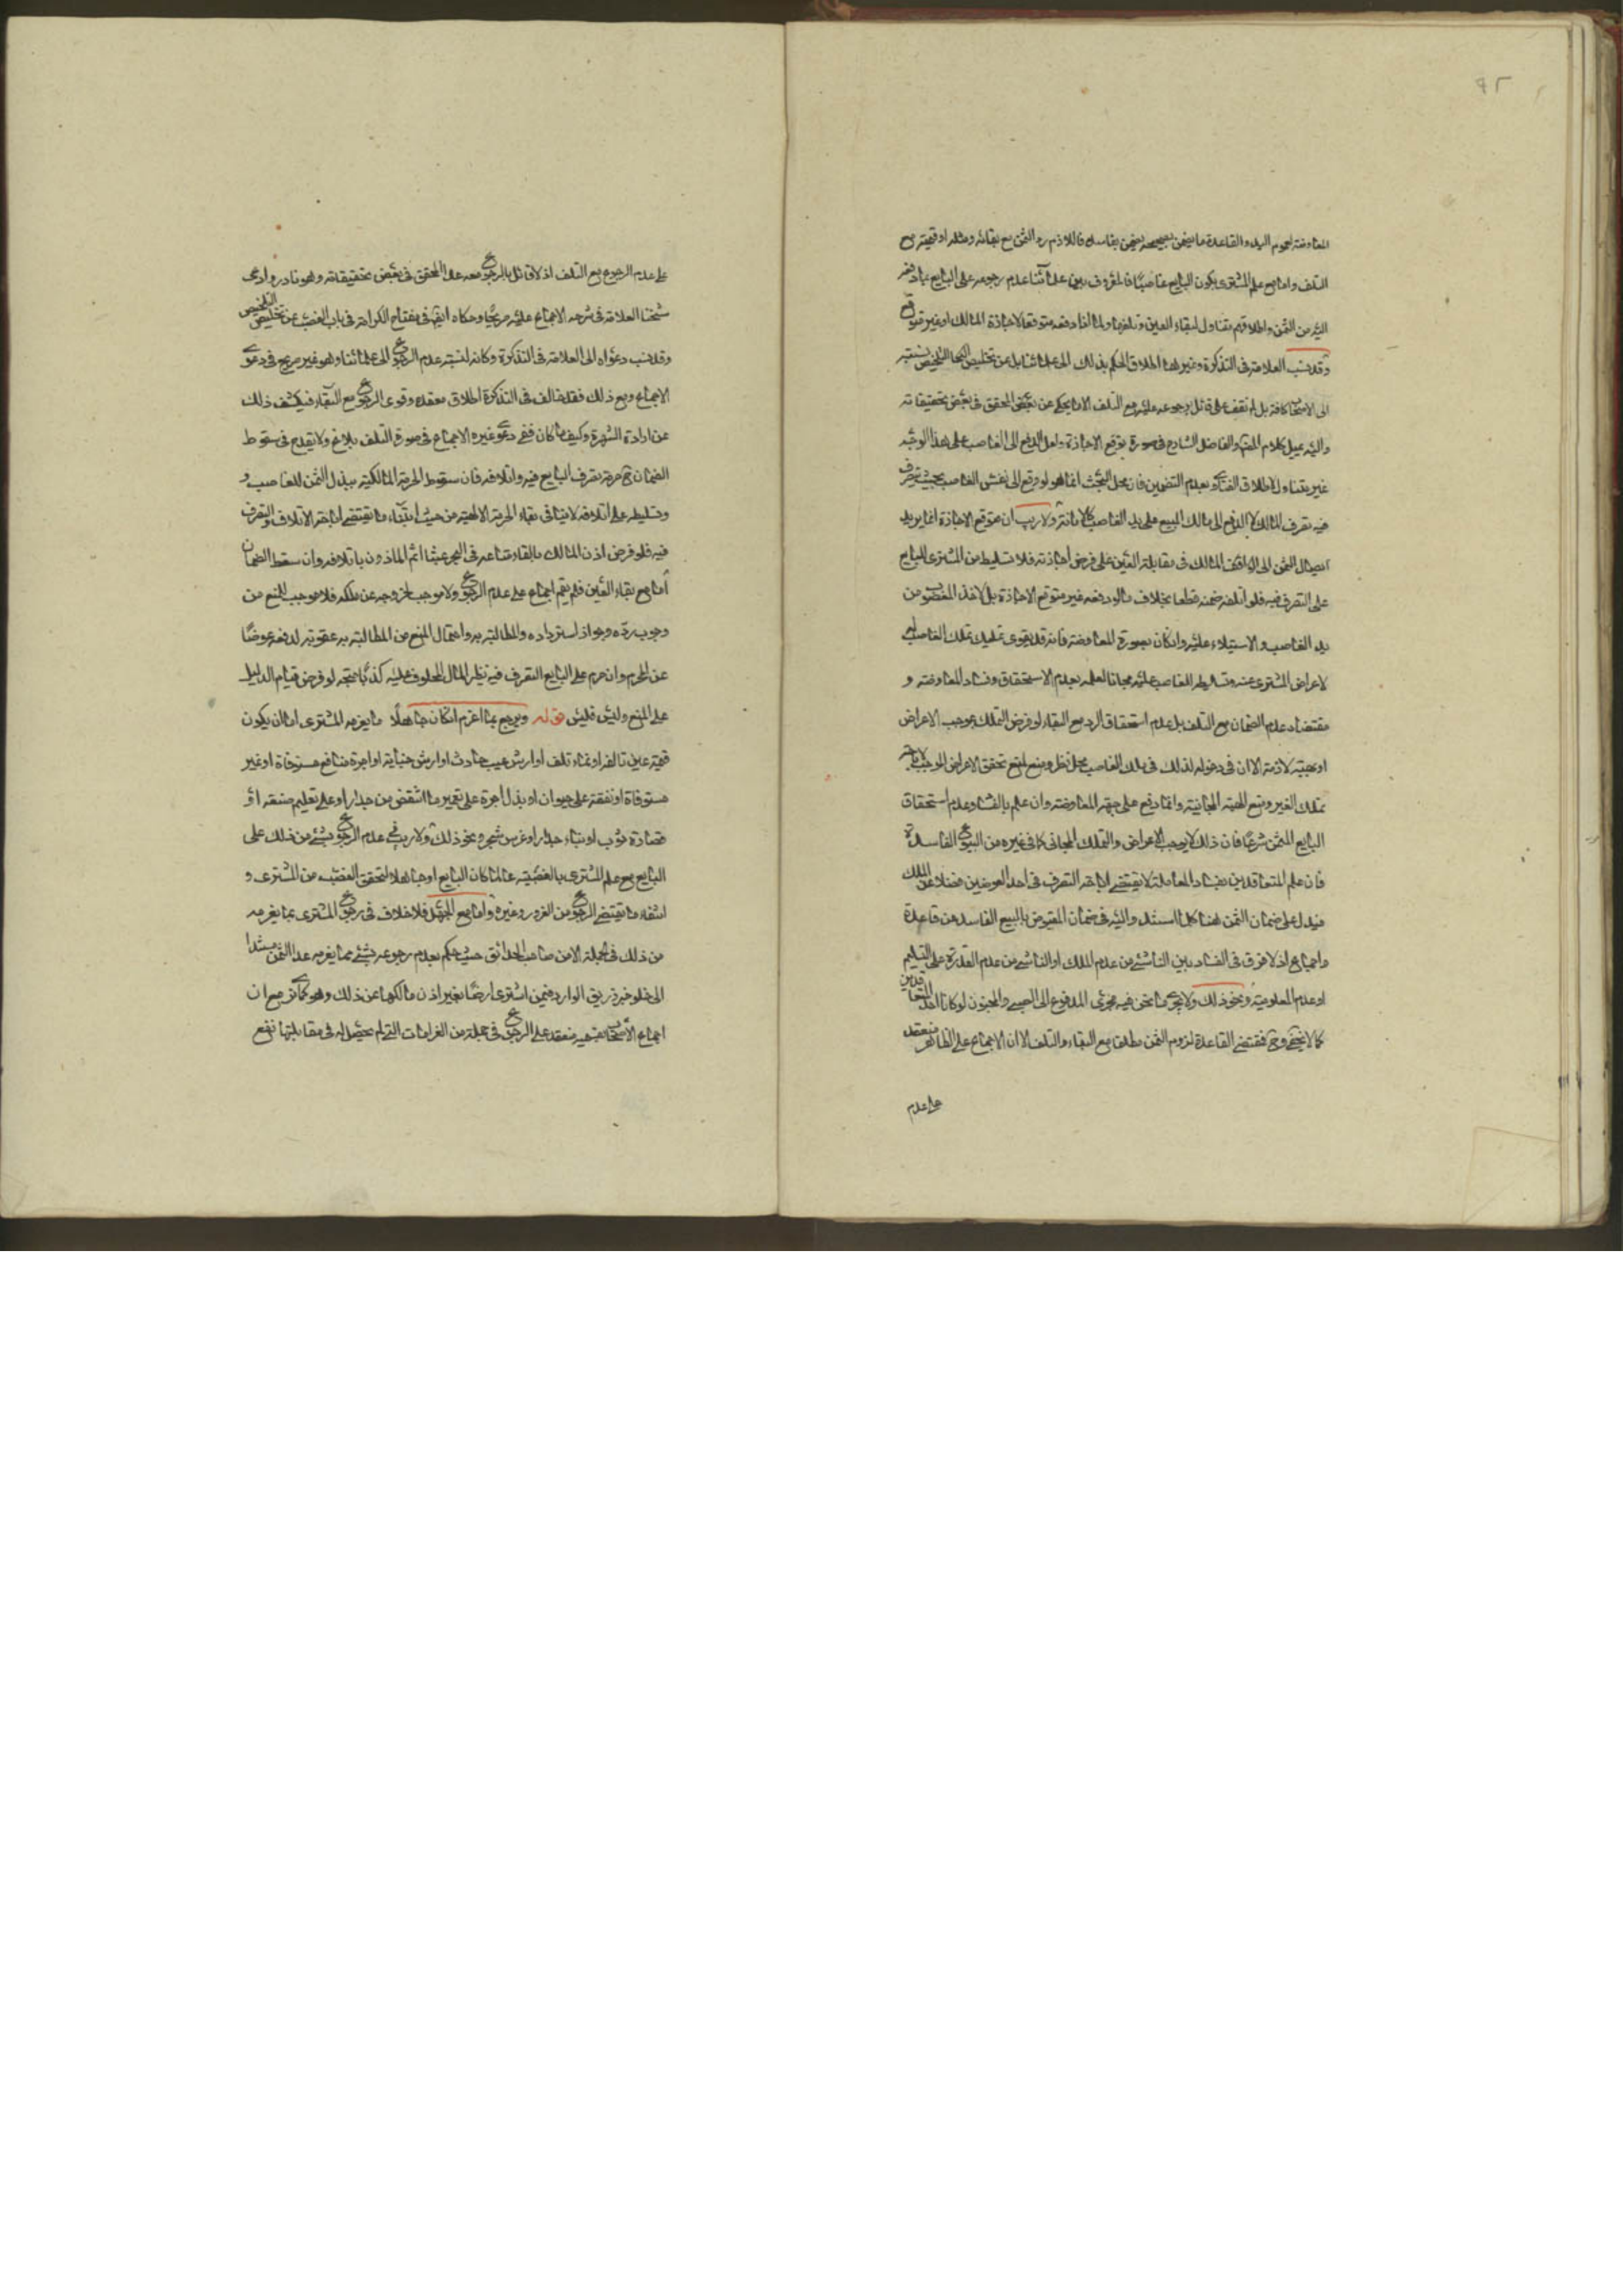 ٩٢
المعاوضة لعموم اليد والقاعدة ما يضمن بصحيحه يضمن بفاسده فاللازم رد الثمن مع بقائه ومثله او قيمته مع
التلف واما مع علم المشتري بكون البايع غاصبا فالمعروف بين علمائنا عدم رجوعه على البايع بما دفعه
اليه من الثمن واطلاقهم يتناول لبقاء العين وتلفها ولما لو دفعه متوقعا لاجازة المالك او غير متوقع
وقد نسب العلامة في التذكرة وغير هذا اطلاق الحكم بذلك الى علمائنا بل عن تخليص التلخيص نسبته
الى الاصحاب كافة بل لم نقف على قائل برجوعه عليه مع التلف الا ما يحكى عن بعض المحقق في بعض تحقيقاته
واليه يميل كلام والفاضل الشارح في صورة توقع الاجازة ولعل الدفع الى الغاصب على هذا الوجه
غير يتناوله اطلاق الفتاوى بعدم التضمين فان محل البحث انما هو لو دفع الى نفس الغاصب بحيث يتصرف
فيه تصرف المالك لا الدفع الى مالك المبيع على يد الغاصب كالامانة ولا ريب ان متوقع الاجازة انما يريد
ايصال الثمن الى المالك في مقابلة العين على فرض اجازته فلا تسليط من المشتري للبايع
على التصرف فيه فلو اتلفه ضمنه قطعا بخلاف ما لو دفعه غير متوقع الاجازة بل لاخذ المغصوب من
يد الغاصب والاستيلاء عليه وان كان بصورة المعاوضة فانه قد يقوى تمليك تملك الغاصب له
لاعراض المشتري عنه وتسليطه للغاصب عليه مجانا لعلمه بعدم الاستحقاق وفساد المعاوضة و
مقتضاه عدم الضمان مع التلف بل عدم استحقاق الرد مع البقاء لو فرض التملك بموجب الاعراض
او بهبة لازمة الا ان في دعوله لذلك في ملك الغاصب محل نظر ومنع لمنع تحقق الاعراض الموجب
تملك الغير ومنع الهبة المجانية وانما دفع على جهة المعاوضة وان علم بالفساد وعدم استحقاق
البايع الثمن شرعا فان ذلك لا يوجب الاعراض والتملك المجاني كما في غيره من البيوع الفاسدة
فان علم المتعاقدين بفساد المعاملة لا يقتضي اباحة التصرف في احد العوضين فضلا عن الملك
فيدل على ضمان الثمن هنا كلما استند واليه في ضمان المقبوض بالبيع الفاسد من قاعدة
واجماع اذ لا فرق في الفساد بين الناشئ من عدم الملك او الناشئ من عدم القدرة على التسليم
او عدم المعلومية ونحو ذلك ولا يجري ما نحن فيه مجرى المدفوع الى الصبي والمجنون لو كانا احد المتعاقدين
كما لا يخفى وح فمقتضى القاعدة لزوم الثمن مطلقا مع البقاء والتلف الا ان الاجماع على الظاهر منعقد
على عدم
على عدم الرجوع مع التلف اذ لا قائل بالرجوع معه عدا المحقق في بعض تحقيقاته وهو نادر وادعى
شيخنا العلامة في شرحه الاجماع عليه صريحا وحكاه ايضا في مفتاح الكرامة في باب الغصب عن تخليص التلخيص
وقد نسب دعواه الى العلامة في التذكرة وكانه لنسبته عدم الرجوع الى علمائنا وهو غير صريح في دعوى
الاجماع ومع ذلك فقد خالف في التذكرة اطلاق معقده وقوى الرجوع مع البقاء فيكشف ذلك
عن ارادة الشهرة وكيف ما كان ففي دعوى غيره الاجماع في صورة التلف بلاغ ولا يقدح في سقوط
الضمان ح حرمة تصرف البايع فيه واتلافه فان سقوط الحرمة المالكية ببذل الثمن للغاصب و
وتسليطه على اتلافه لا ينافي بقاء الحرمة الالهية من حيث انتفاء ما يقتضي اباحة الاتلاف والتصرف
فيه فلو فرض اذن المالك بالقاء متاعه في البحر عبثا اثم الماذون باتلافه وان سقط الضمان
اما مع بقاء العين فلم يقم اجماع على عدم الرجوع ولا موجب لخروجه عن ملكه فلا موجب للمنع من
وجوب رده وجواز استرداده والمطالبة به واحتمال المنع من المطالبة به عقوبة لدفعه عوضا
عن المحرم وان حرم على البايع التصرف فيه نظير المال المحلوف عليه كذبا متجه لو فرض قيام الدليل
على المنع وليس فليس قوله ويرجع بما اغترم ان كان جاهلا ما يغرمه المشتري اما ان يكون
قيمة عين تالفة او نماء تلف او ارش عيب حادث او ارش جناية او اجرة منافع مستوفاة او غير
مستوفاة او نفقة على حيوان او بذل اجرة على تعمير ما انتقض من جدار او على تعليم صنعة او
قصارة ثوب او بناء جدار او غرس شجر ونحو ذلك ولا ريب في عدم الرجوع بشئ من ذلك على
البايع مع علم المشتري بالغصبية عالما كان البايع او جاهلا لتحقق الغصب من المشتري و
انتفاء ما يقتضي الرجوع من الغرور وغيره واما مع الجهل فلا خلاف في رجوع المشتري بما يغرمه
من ذلك في الجملة الا من صاحب الحدائق حيث حكم بعدم رجوعه بشئ مما يغرمه عدا الثمن مستندا
الى خلو خبر زريق الوارد فيمن اشترى ارضا بغير اذن مالكها عن ذلك وهو كما ترى مع ان
اجماع الاصحاب بقسميه منعقد على الرجوع في جملة من الغرامات التي لم يحصل له في مقابلتها نفع